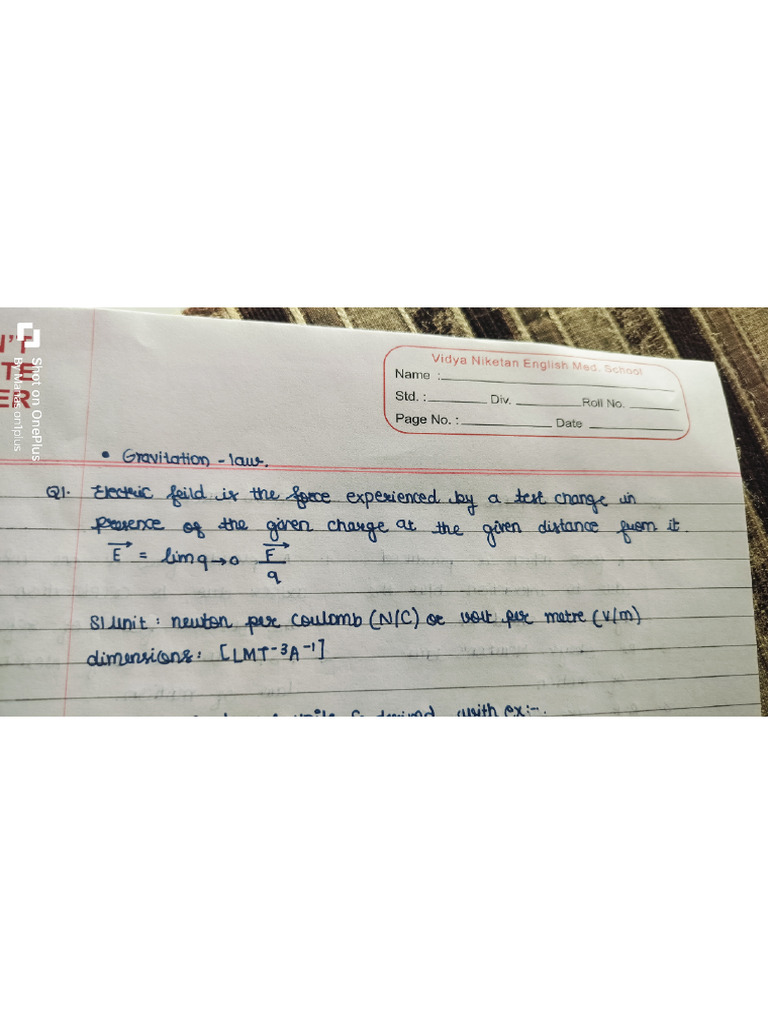 N'T
TE
ER
Shot on OnePlus
By Manas on1plus
Vidya Niketan English Med. School
Name :
Std. : Div. Roll No.
Page No. : Date
• Gravitation - law.
Q1. Electric feild is the force experienced by a test change in
presence of the given charge at the given distance from it.
E = lim q→0 F
q
SI unit : newton per coulomb (N/C) or volt per metre (V/m)
dimensions: [LMT-3A-1]
with ex:-.